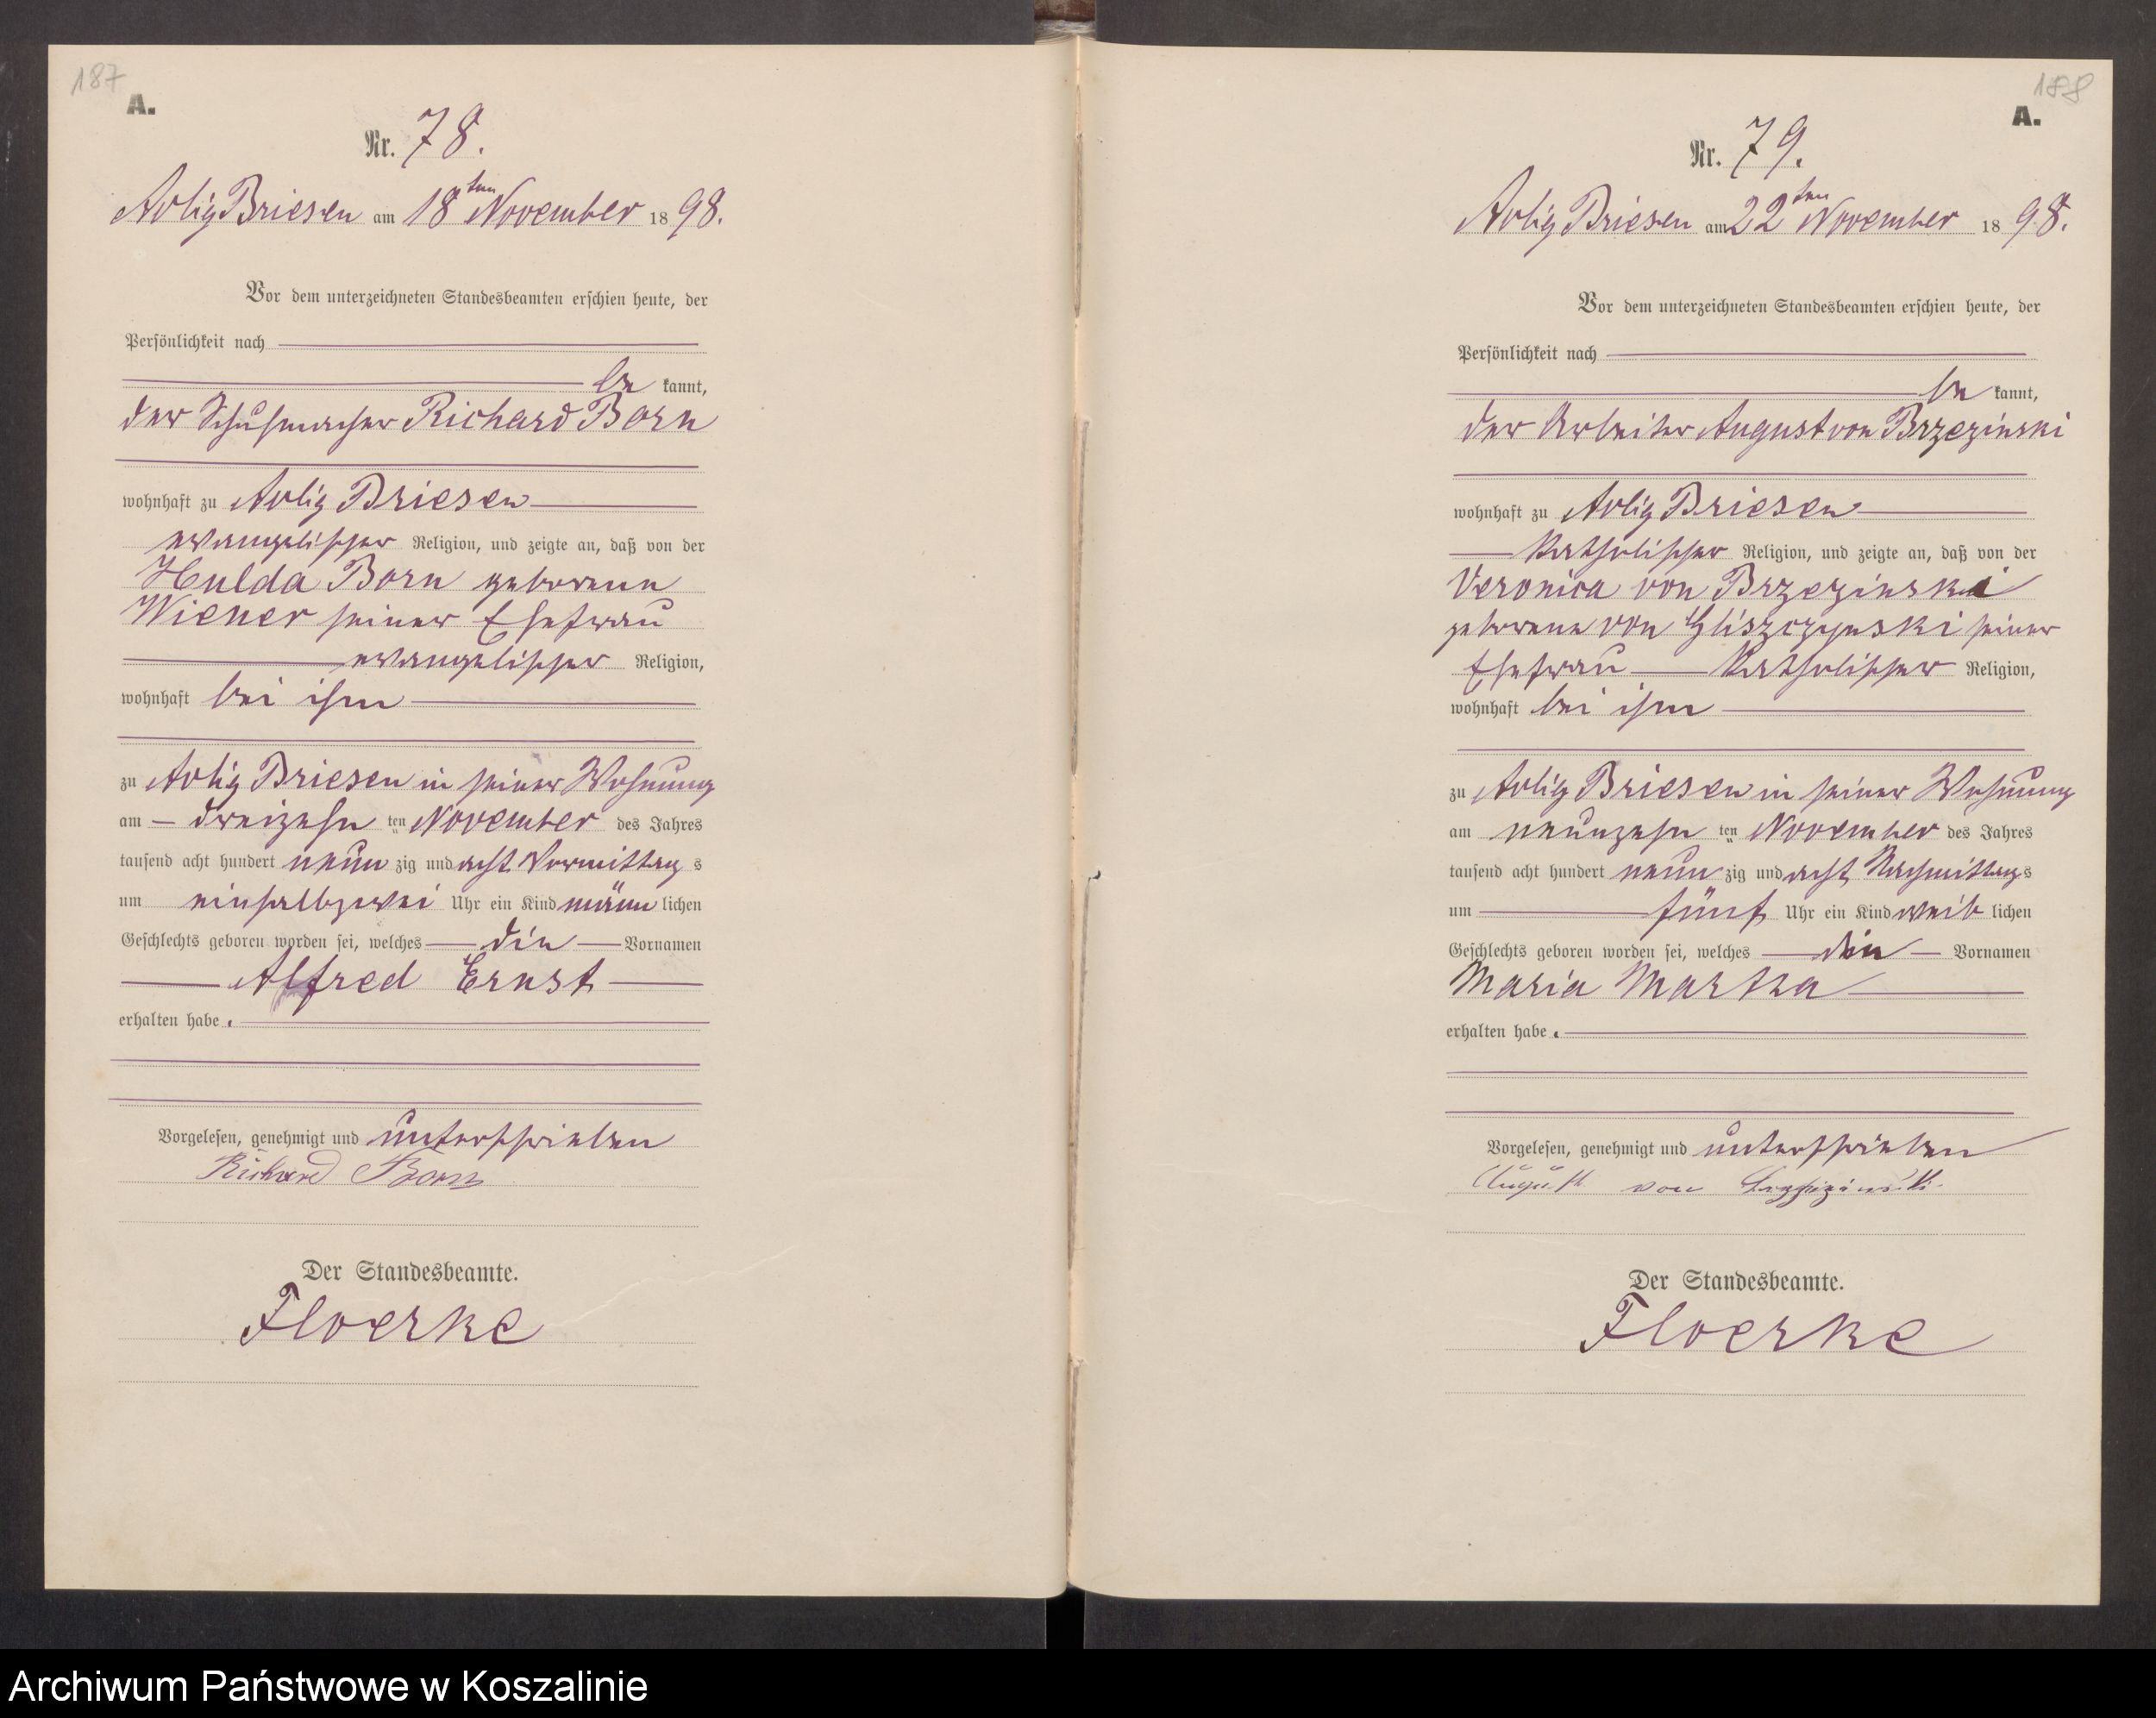 187
A.
Nr. 78.
Adlig Briesen am 18ten November 1898.
Vor dem unterzeichneten Standesbeamten erschien heute, der
Persönlichkeit nach
be kannt,
der Schuhmacher Richard Born
wohnhaft zu Adlig Briesen
evangelischer Religion, und zeigte an, daß von der
Hulda Born geborene
Wiener seiner Ehefrau
evangelischer Religion,
wohnhaft bei ihm
zu Adlig Briesen in seiner Wohnung
am dreizehn ten November des Jahres
tausend acht hundert neun zig und acht Vormittag s
um einhalbzwei Uhr ein Kind männ lichen
Geschlechts geboren worden sei, welches die Vornamen
Alfred Ernst
erhalten habe.
Vorgelesen, genehmigt und unterschrieben
Richard Born
Der Standesbeamte.
Floerke
188
A.
Nr. 79.
Adlig Briesen am 22ten November 1898.
Vor dem unterzeichneten Standesbeamten erschien heute, der
Persönlichkeit nach
be kannt,
der Arbeiter August von Brzezinski
wohnhaft zu Adlig Briesen
katholischer Religion, und zeigte an, daß von der
Veronica von Brzezinski
geborene von Gliszczynski seiner
Ehefrau katholischer Religion,
wohnhaft bei ihm
zu Adlig Briesen in seiner Wohnung
am neunzehn ten November des Jahres
tausend acht hundert neun zig und acht Nachmittags
um fünf Uhr ein Kind weib lichen
Geschlechts geboren worden sei, welches die Vornamen
Maria Martha
erhalten habe.
Vorgelesen, genehmigt und unterschrieben
August von Brzezinski
Der Standesbeamte.
Floerke
Archiwum Państwowe w Koszalinie